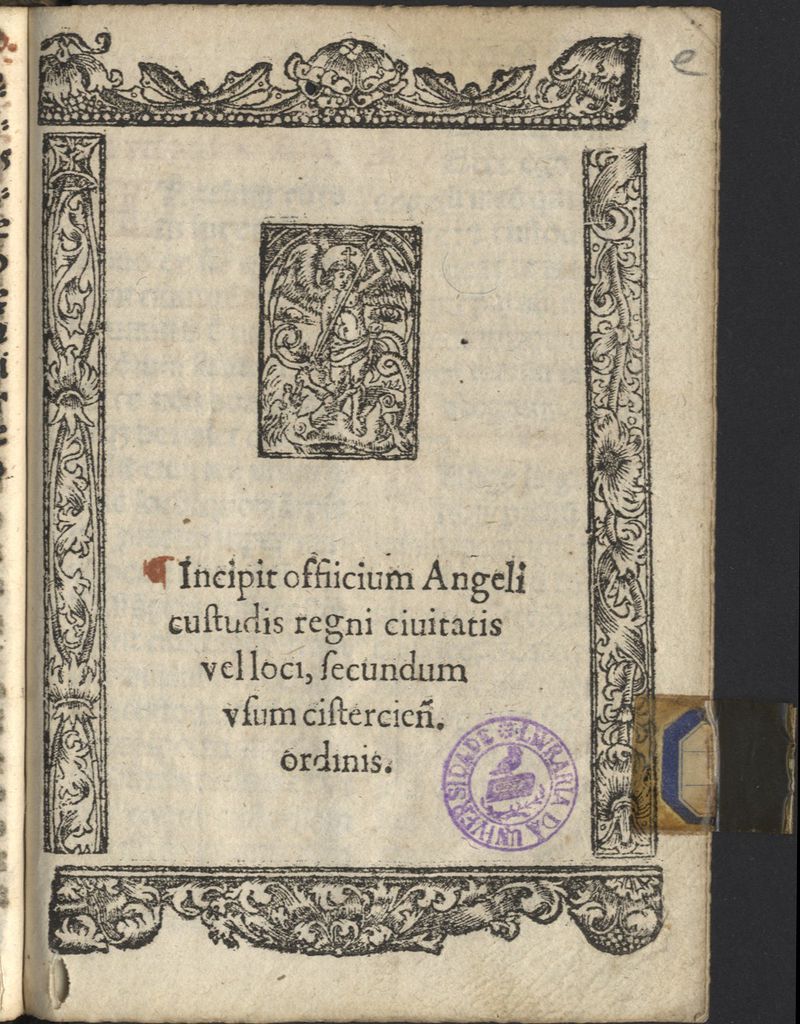 e
¶ Incipit offiicium Angeli
cuſtudis regni ciuitatis
vel loci, ſecundum
vſum ciſterciẽn.
ordinis.
LIVRARIA DA UNIVERSIDADE